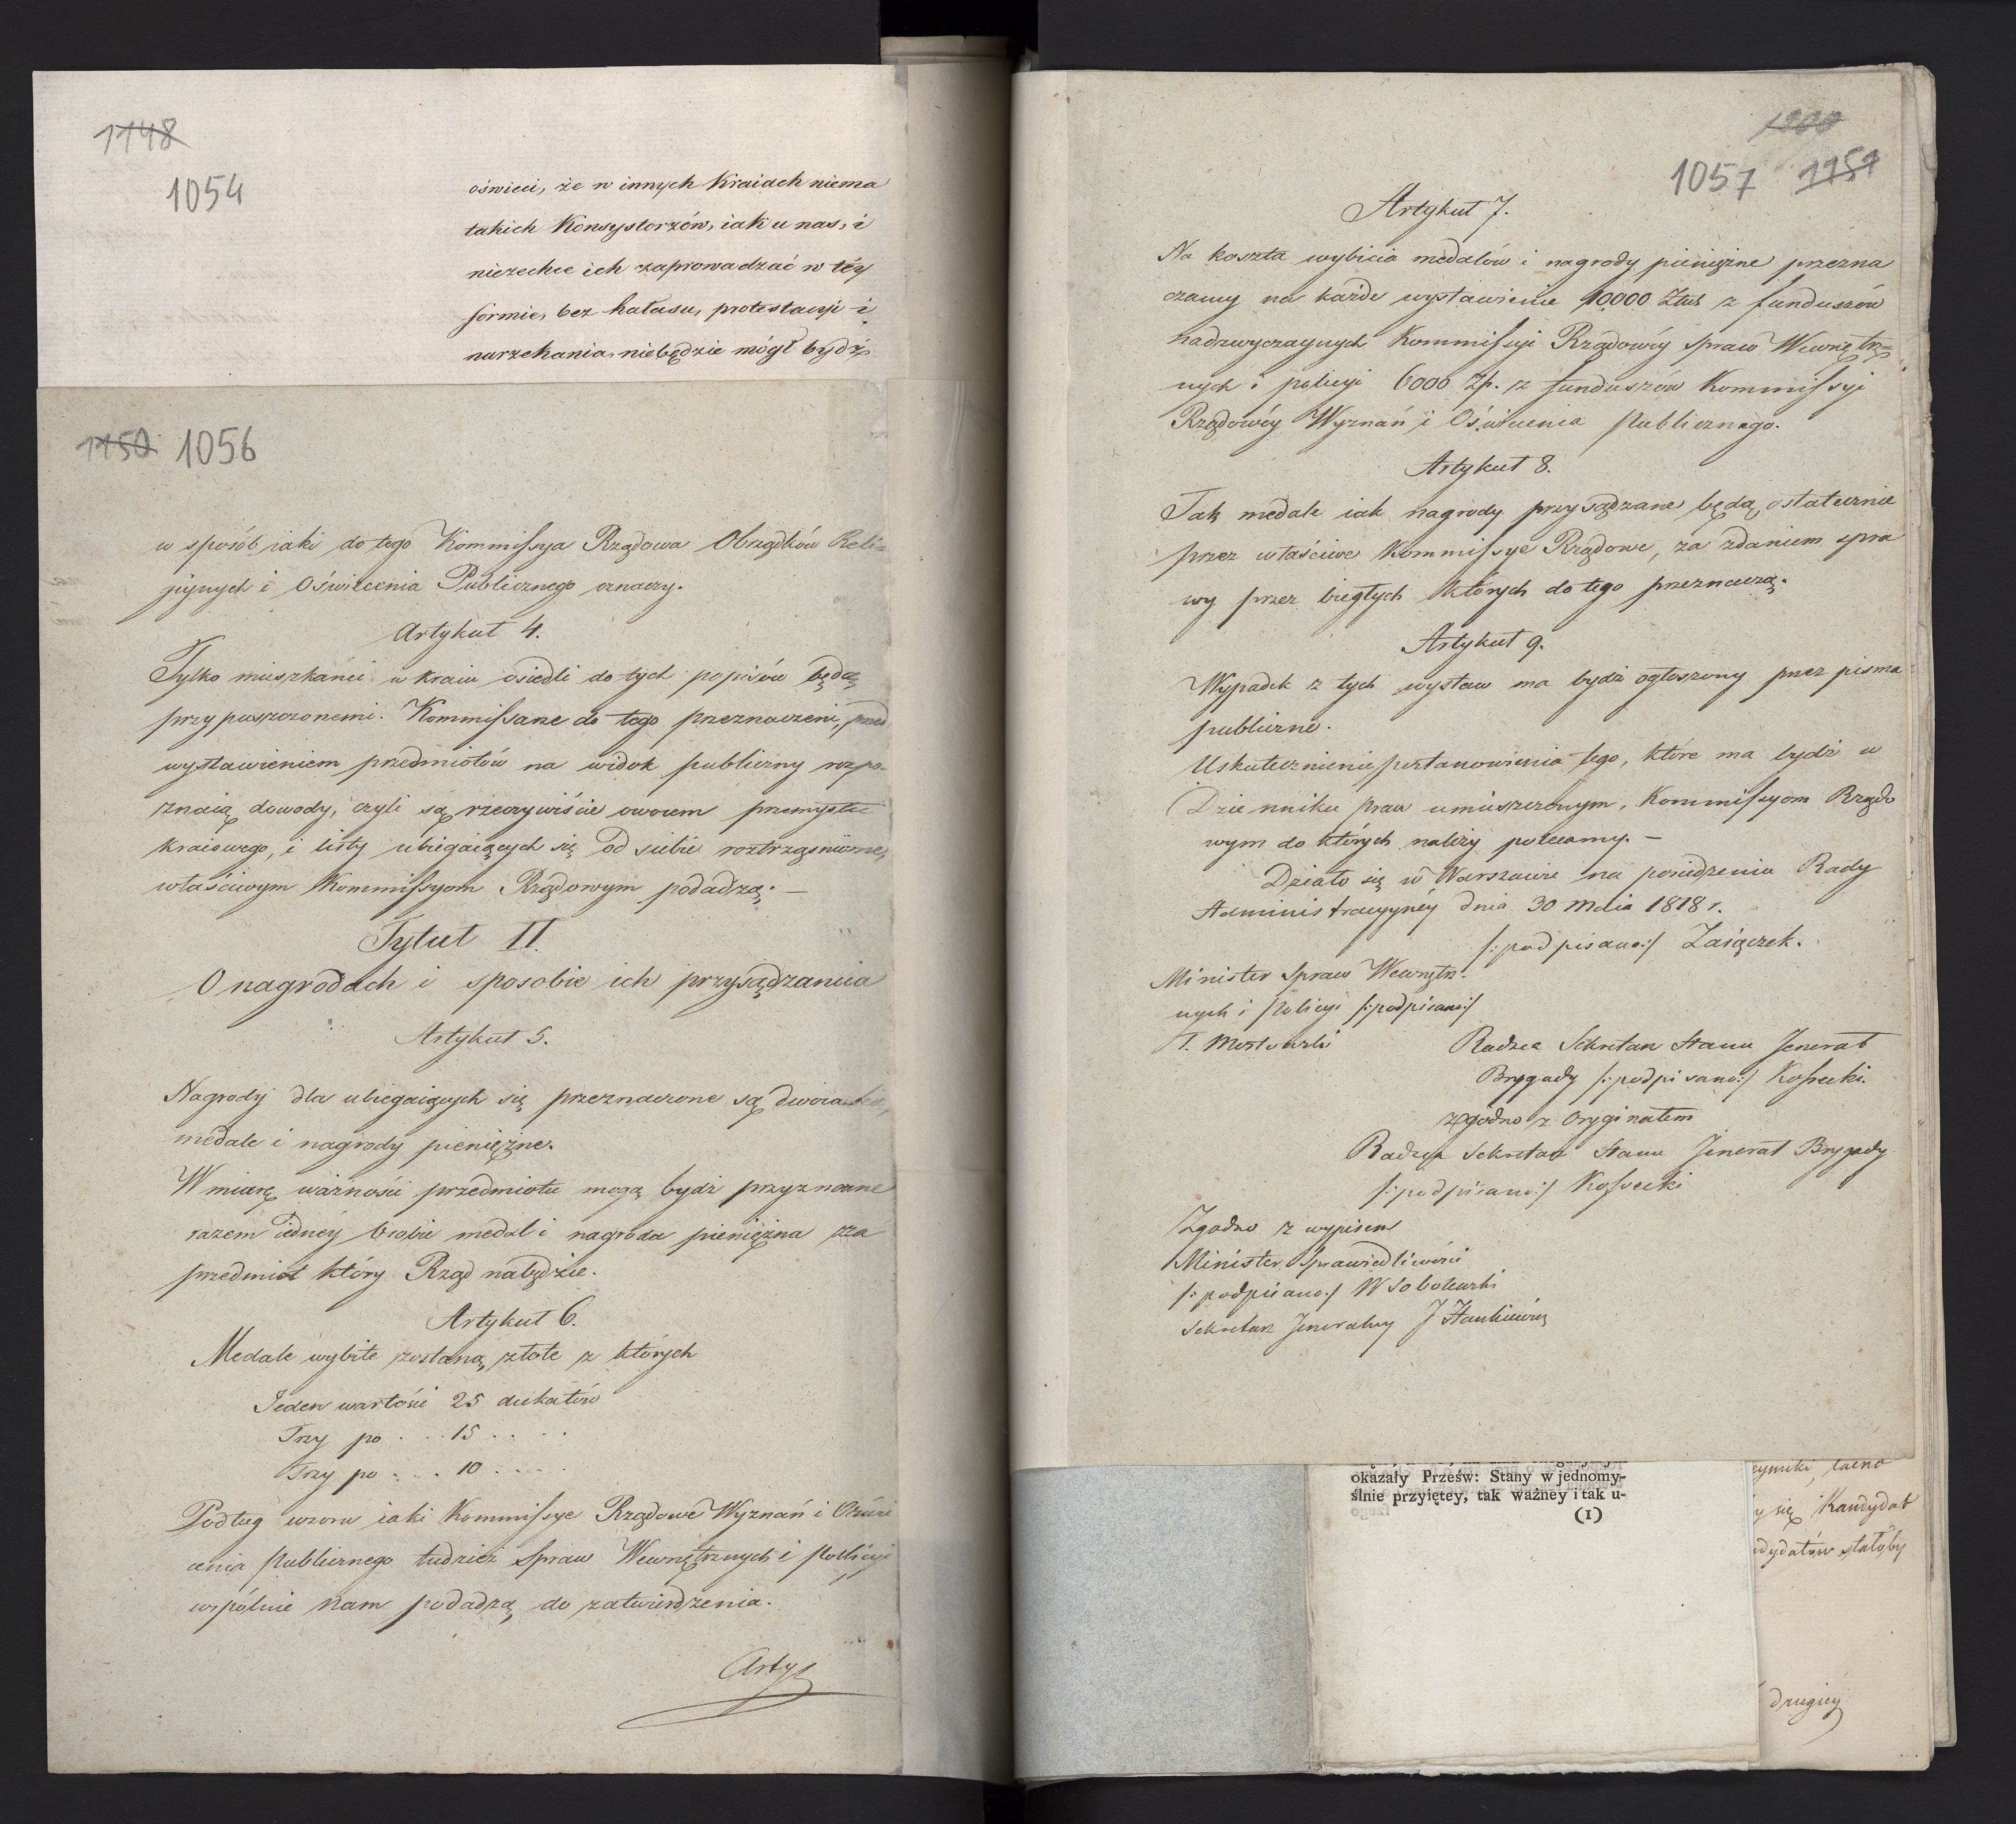 1148
1054
oświeci, że w innych Kraiach niema
takich Konsystorzów, iak u nas, i
niezechce ich zaprowadzać w téy
formie, bez hałasu, protestacyi i
narzekania, niebędzie mógł bydź
1150 1056
w sposób iaki do tego Kommissya Rządowa Obrządków Reli=
jiynych i Oświecenia Publicznego oznaczy.
Artykuł 4.
Tylko mieszkańci w kraiu osiedli do tych popisów będą
przypuszczonemi. Kommissarze do tego przeznaczeni, przed
wystawieniem przedmiotów na widok publiczny rozpo-
znaią dowody, czyli są rzeczywiście owocem przemysłu
kraiowego, i listy ubiegaiących się od siebie roztrząśnione,
właściwym Kommissyom Rządowym podadzą. —
Tytuł II.
O nagrodach i sposobie ich przysądzania
Artykuł 5.
Nagrody dla ubiegaiących się przeznaczone są dwoiakie,
medale i nagrody pieniężne.
W miarę ważności przedmiotu mogą bydź przyznane
razem iednéy Osobie medal i nagroda pieniężna za
przedmiot który Rząd nabędzie.
Artykuł 6.
Medale wybite zostaną złote z których
Jeden wartości 25 dukatów
Trzy po . . . 15 . . . .
Trzy po . . . 10 . . . .
Podług wzoru iaki Kommissye Rządowe Wyznań i Oświe
cenia Publicznego tudzież Spraw Wewnętrznych i Policyi
wspólnie nam podadzą do zatwierdzenia.
Arty
1200
1057 1151
Artykuł 7.
Na koszta wybicia medalów i nagrody pieniężne przezna
czamy na każde wystawienie 10000 Złtt z funduszów
nadzwyczaynych Kommissyi Rządowéy Spraw Wewnętrz=
nych i policyi 6000 Zł. z funduszów Kommissyi
Rządowéy Wyznań i Oświecenia Publicznego.
Artykuł 8.
Tak medale iak nagrody przysądzane będą ostatecznie
przez właściwe Kommissye Rządowe, za zdaniem spra
wy przez biegłych których do tego przeznaczą.
Artykuł 9.
Wypadek z tych wystaw ma bydź ogłoszony przez pisma
publiczne.
Uskutecznienie postanowienia tego, które ma bydź w
Dzienniku praw umieszczonym, Kommissyom Rządo
wym do których należy polecamy. —
Działo się w Warszawie na posiedzeniu Rady
Administracyynéy dnia 30 Maia 1818 r.
/:podpisano:/ Zaiączek.
Minister Spraw Wewnętrz-
nych i Policyi /:podpisano:/
T. Mostowski
Radzca Sekretarz Stanu Jenerał
Brygady /:podpisano:/ Kossecki.
zgodno z Oryginałem
Radzca Sekretarz Stanu Jenerał Brygady
/:podpisano:/ Kossecki
Zgodno z wypisem
Minister Sprawiedliwości
/:podpisano:/ W Sobolewski
Sekretarz Jeneralny J Hankiewicz
okazały Prześw: Stany w jednomy-
ślnie przyiętey, tak ważney i tak u-
(1)
y się Kandydat
drugiey